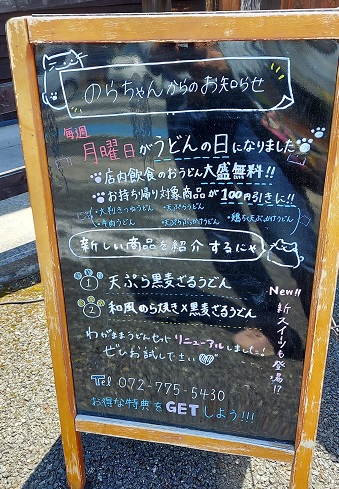 のらちゃんからのお知らせ
毎週
月曜日がうどんの日になりました
店内飲食のおうどん大盛無料!!
お持ち帰り対象商品が100円引きに!!
・大判きつねうどん ・天ぷらうどん ・鶏ちく天ぶっかけうどん
・牛肉うどん ・天ぷらぶっかけうどん
新しい商品を紹介するにゃ
① 天ぷら黒麦ざるうどん
② 和風のら焼き×黒麦ざるうどん
New!! 新スイーツも登場!?
わがままうどんセット リニューアルしました!
ぜひお試し下さい
Tel 072-775-5430
お得な特典をGETしよう!!!